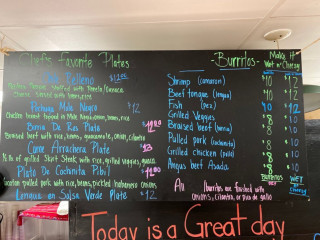 Chef's Favorite Plates
Chile Relleno $11.95
Stuffed with Tomato
Cheese. Served with beans, rice
Pechuga Mole Negro $12
Chicken breast topped in Mole Negro, beans, rice
Birria De Res Plate $12.00
Braised beef with rice, beans, guacamole, onion, cilantro
Carne Arrachera Plate $13
of grilled Skirt Steak with rice, grilled veggies, guaca
Plato De Cochinita Pibil
pulled pork with rice, beans, pickled habanero onions
Lengua en Salsa Verde Plate $12
Burritos
Make It
Wet or Cheesy
Shrimp (camaron) $12
Beef tongue (lengua) $12
Fish (pez) 10 12
Grilled Veggies 8
Braised beef (birria) 8
Pulled pork (cochinita) 8
Grilled chicken (pollo) 8
Angus beef Asada 8
Burritos
Wet
or
Cheesy
All Burritos are finished with
onions, cilantro, or pico de gallo
Today is a Great day